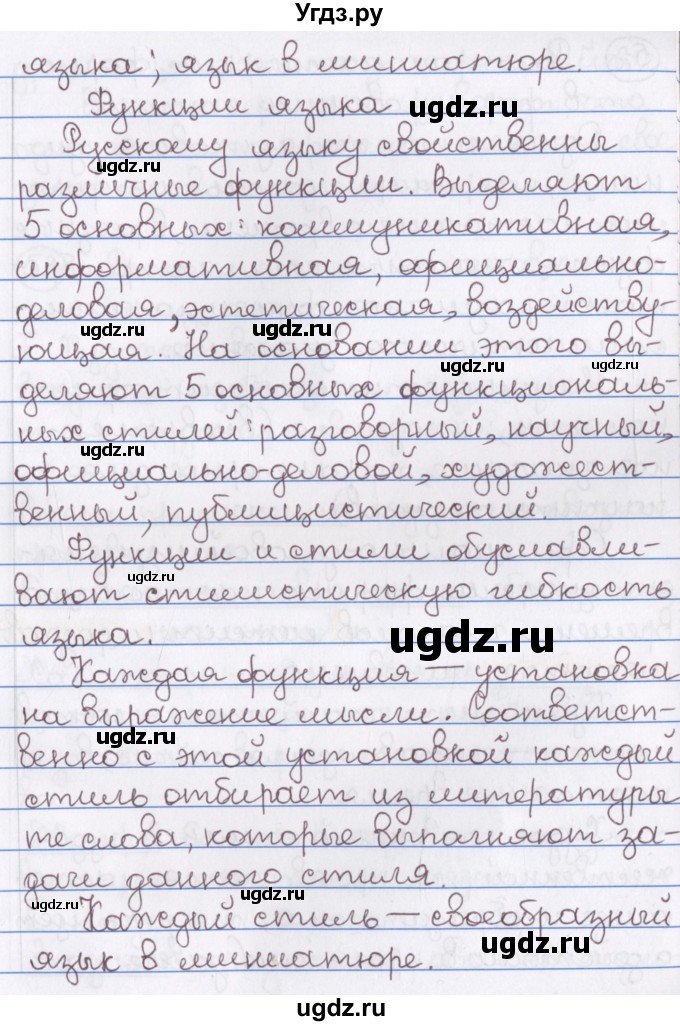 Угдз.ру
языка; язык в миниатюре.
Функции языка
ugdz.ru
Русскому языку свойственны
ugdz.ru
различные функции. Выделяют
5 основных: коммуникативная,
ugdz.ru
информативная, официально-
деловая, эстетическая, воздейству-
ugdz.ru ugdz.ru
ющая. На основании этого вы-
ugdz.ru
деляют 5 основных функциональ-
ных стилей: разговорный, научный,
ugdz.ru
официально-деловой, художест-
венный, публицистический.
Функции и стили обуславли-
ugdz.ru
вают стилистическую гибкость
языка.
ugdz.ru
Каждая функция — установка
на выражение мысли. Соответст-
ugdz.ru
венно с этой установкой каждый
стиль отбирает из литературы
те слова, которые выполняют за-
дачи данного стиля.
ugdz.ru
Каждый стиль — своеобразный
ugdz.ru
язык в миниатюре.
ugdz.ru